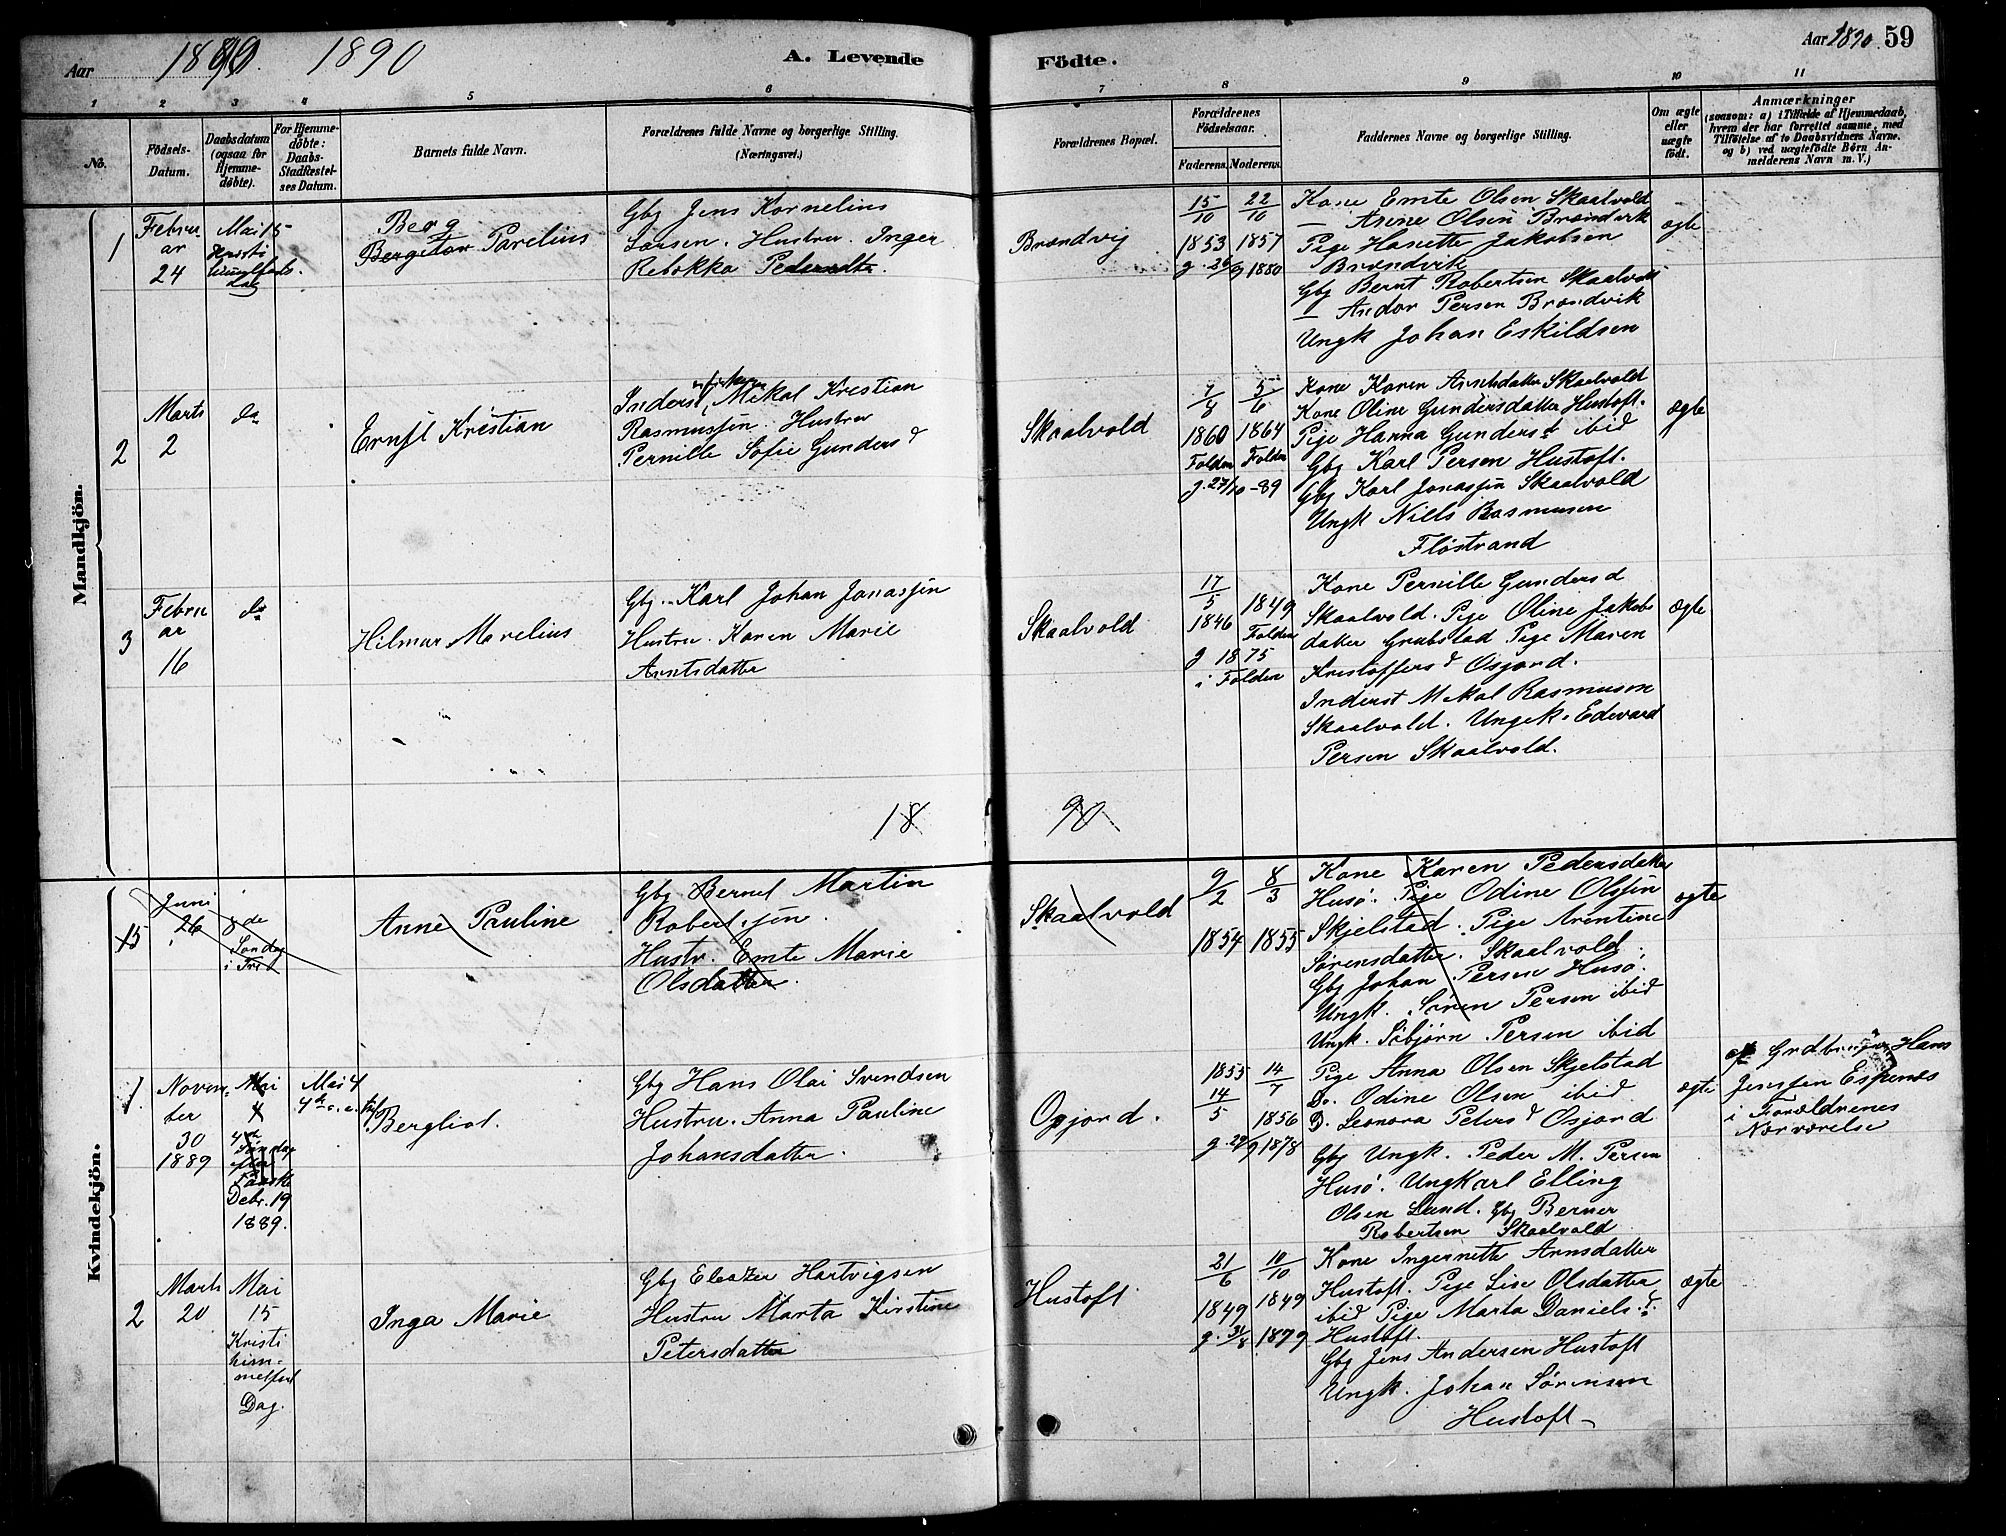 Aar 1890 1890
A. Levende Födte.
Aar 1890. 59
1 2 3 4 5 6 7 8 9 10 11
No.
Födsels-
Datum.
Daabsdatum
(ogsaa for
Hjemme-
döbte).
For Hjemme-
döbte:
Daabs-
Stadfæstel-
ses Datum.
Barnets fulde Navn.
Forældrenes fulde Navne og borgerlige Stilling.
(Næringsvei.)
Forældrenes Bopæl.
Forældrenes
Födselsaar.
Faderens. Moderens.
Faddernes Navne og borgerlige Stilling.
Om ægte
eller
uægte
født.
Anmærkninger
(saasom: a) i Tilfælde af Hjemmedaab,
hvem der har forrettet samme, med
Tilföielse af to Daabsvidners Navne,
og b) ved uægtefödte Börn An-
melderens Navn m. V.)
Mandkjön.
1
Febru
ar
24
Mai 15
Kristi
himmelfarts
dag
Berg
Bergitor Parelius
Gbg Jens Kornelius
Larsen. Hustru. Inger
Rebekka
Brændvig
15/10 22/10
1853 1857
g. 26/9 1880
Kone Emte Olsen Skaalvold
— Asine Olsen Brændvik
Pige Hanette Jakobsen
Brændvik
Gbg Bernt Robertsen Skaalvold
— Andor Persen Brændvik
Ungk Johan Eskildsen
ægte
2
Marts
2
do
Ernst Kristian
Inderst, Mikal Kristian
Rasmussen. Hustru
Pernille Sofie Gunders d
Skaalvold
5/6
1860 1864
Folden Folden
g. 27/10 -89
Kone Karen Arntsdatter Skaalvold
Kone Oline Gundersdatter Hustoft.
Pige Hanna Gundersd ibid
Gbg Karl Persen Hustoft.
Gbg Karl Jonassen Skaalvold
Ungk Niels Rasmusen
Flöstrand
ægte
3
Febru
ar
16
do
Hilmar Marelius
Gbg. Karl Johan Jonassen
Hustru. Karen Marie
Arntsdatter
Skaalvold
17/5
1846 1849
Folden
g 1875
i Folden
Kone Pernille Gunders d
Skaalvold. Pige Oline Jakobs
datter Grubstad Pige Maren
Kristoffers d Osjord.
Inderst Mikal Rasmusen
Skaalvold. Ungk. Edvard
Persen Skaalvold.
ægte
18 90
Kvindekjön.
15
Juni
26
8de
Søndag
i Tref
Anne Pauline
Gbg Bernt Martin
Robertsen.
Hustr. Emte Marie
Olsdatter.
Skaalvold
9/2 8/3
1854 1855
Kone Karen Pedersdatter
Husö. Pige Odine Olssen
Skjelstad. Pige Arntine
Sörensdatter. Skaalvold.
Gbg Johan Persen Husö.
Ungk. Sören Persen ibid
Ungk. Söbjörn Persen ibid
ægte
1.
Novem
ber
30
1889
Mai
4
4de
Søndag
efter
Paaske
Debr. 19
1889.
Mai 4
Bergliot.
Gbg Hans Olai Svendsen
Hustru. Anna Pauline
Johansdatter.
Osjord.
1853 14/7
14/5 1856
g. 29/9 1878
Pige Anna Olsen Skjelstad
Do. Odine Olsen ibid.
D. Leonora Peters d Osjord
Gbg Ungk. Peder M. Persen
Husö. Ungkarl Elling
Olsen Lund. Gbg Berner
Robertsen Skaalvold
ægte
af Grdbruger Hans
Jenssen Espenæs
i Forældrenes
Nærværelse
2
Marts
20
Mai
15
Kristi
him-
melfart
Dag.
Inga Marie
Gbg Eleazer Hartvigsen
Hustru Marta Kirstine
Petersdatter
Hustoft
21/6 10/10
1849 1849
g. 31/8 1879
Kone Ingernette Arnsdatter
Hustoft. Pige Lise Olsdatter
ibid Pige Marta Daniels d.
Hustoft.
Gbg Jens Andersen Hustoft
Ungk. Johan Sörensen
Hustoft
ægte